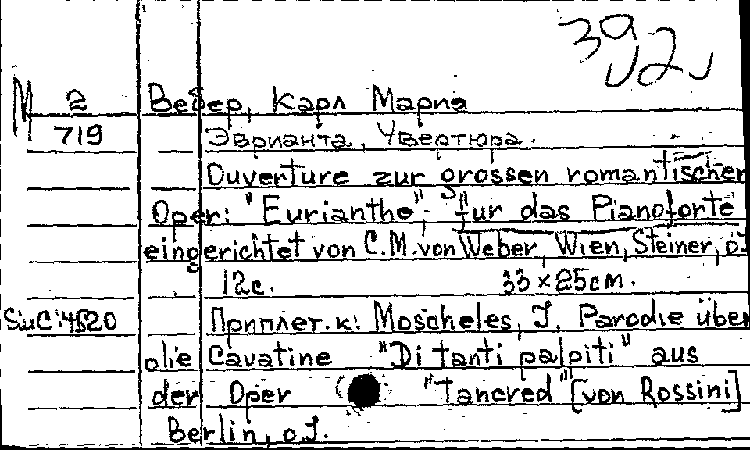 392
M 2 Вебер, Карл Мариа
719 Эврианта, Увертюра.
Ouverture zur grossen romantischen
Oper: "Eurianthe", für das Pianoforte
eingerichtet von C.M. von Weber, Wien, Steiner, o.J.
12с. 33×25см.
Приплет. к: Moscheles, I. Parodie über
die Cavatine "Di tanti palpiti" aus
der Oper "Tancred" [von Rossini]
Berlin, o.J.